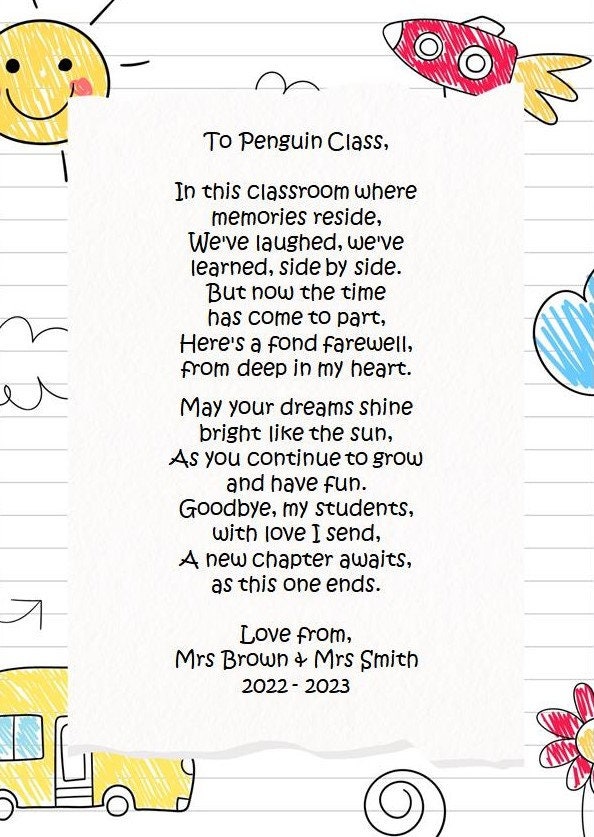 To Penguin Class,
In this classroom where
memories reside,
We've laughed, we've
learned, side by side.
But now the time
has come to part,
Here's a fond farewell,
from deep in my heart.
May your dreams shine
bright like the sun,
As you continue to grow
and have fun.
Goodbye, my students,
with love I send,
A new chapter awaits,
as this one ends.
Love from,
Mrs Brown & Mrs Smith
2022 - 2023